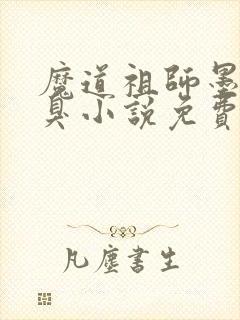 魔道祖師墨
臭小說免費
凡塵書生